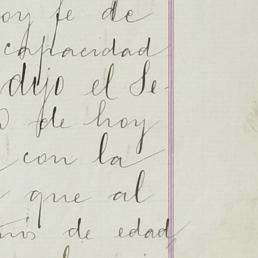 oy fe de
capacidad
dijo el Se-
de hoy
con la
que al
años de edad